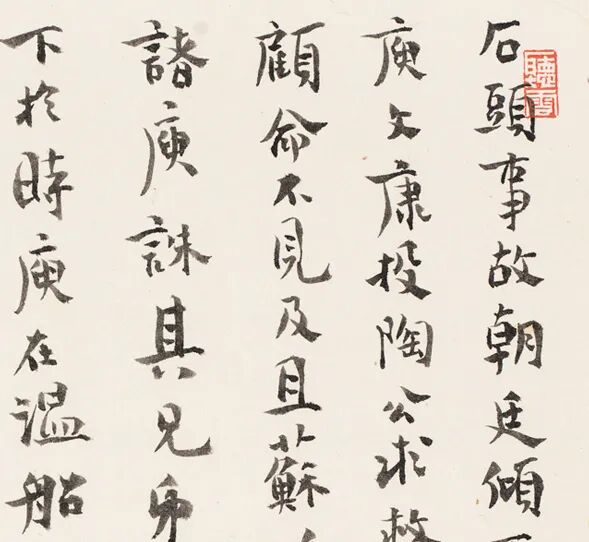 石頭事故朝廷傾
庾文康投陶公求救
顧命不見及且蘇
諸庾誅其兄弟
下於時庾在温船
聽雪